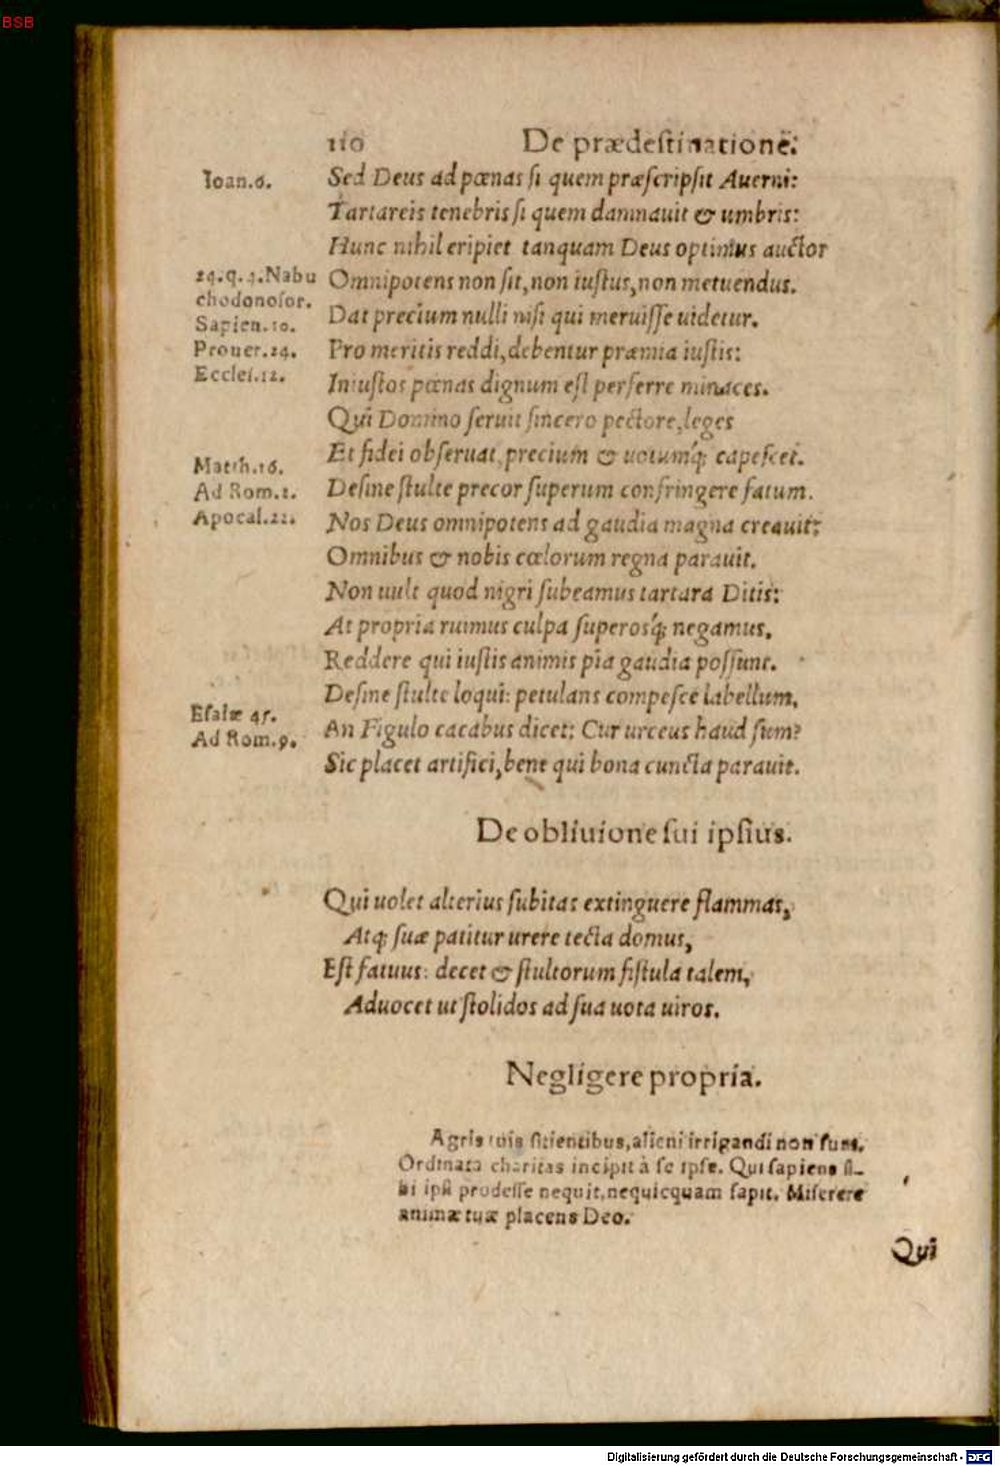 BSB
110 De prædestinatione.
Ioan.6.
Sed Deus ad pœnas si quem præscripsit Auerni:
Tartareis tenebris si quem damnauit & umbris:
Hunc nihil eripiet tanquam Deus optimus auctor
24.q.4.Nabu
chodonosor.
Sapien.10.
Prouer.24.
Eccles.12.
Omnipotens non sit, non iustus, non metuendus.
Dat precium nulli nisi qui meruisse uidetur.
Pro meritis reddi, debentur præmia iustis:
Iniustos pœnas dignum est perferre minaces.
Qui Domino seruit sincero pectore, leges
Et fidei obseruat, precium & uotumq; capescet.
Matth.16.
Ad Rom.2.
Apocal.22.
Desine stulte precor superum confringere fatum.
Nos Deus omnipotens ad gaudia magna creauit:
Omnibus & nobis cœlorum regna parauit.
Non uult quod nigri subeamus tartara Ditis:
At propria ruimus culpa superosq; negamus,
Reddere qui iustis animis pia gaudia possunt.
Desine stulte loqui: petulans compesce labellum,
Esaiæ 45.
Ad Rom.9.
An Figulo cacabus dicet: Cur urceus haud sum?
Sic placet artifici, bene qui bona cuncta parauit.
De obliuione sui ipsius.
Qui uolet alterius subitas extinguere flammas,
Atq; suæ patitur urere tecta domus,
Est fatuus: decet & stultorum fistula talem,
Aduocet ut stolidos ad sua uota uiros.
Negligere propria.
Agris tuis sitientibus, alieni irrigandi non sunt.
Ordinata charitas incipit à se ipse. Qui sapiens si-
bi ipsi prodesse nequit, nequicquam sapit. Miserere
animæ tuæ placens Deo.
Qui
Digitalisierung gefördert durch die Deutsche Forschungsgemeinschaft - DFG